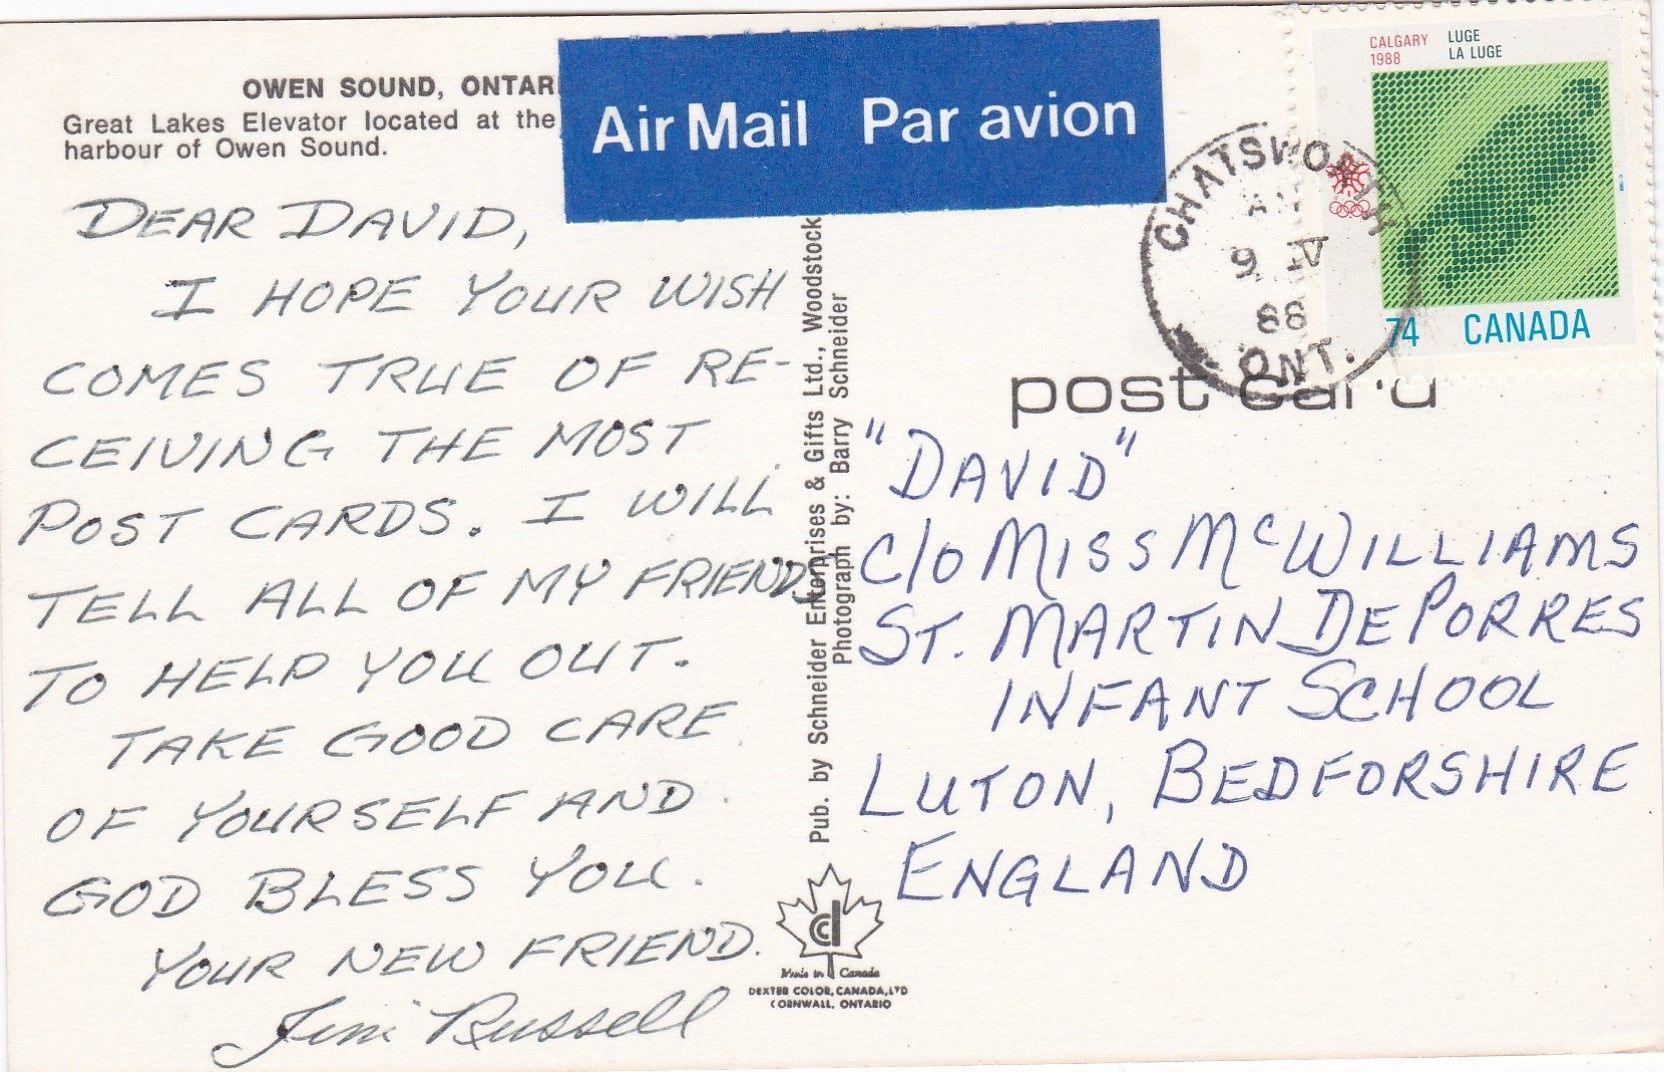 OWEN SOUND, ONTARI
Great Lakes Elevator located at the
harbour of Owen Sound.
Air Mail Par avion
DEAR DAVID,
I HOPE YOUR WISH
COMES TRUE OF RE-
CEIVING THE MOST
POST CARDS. I WILL
TELL ALL OF MY FRIENDS
TO HELP YOU OUT.
TAKE GOOD CARE
OF YOURSELF AND
GOD BLESS YOU.
YOUR NEW FRIEND.
Jim Russell
Pub. by Schneider Enterprises & Gifts Ltd., Woodstock
Photograph by: Barry Schneider
Made in Canada
DEXTER COLOR, CANADA, LTD
CORNWALL, ONTARIO
CALGARY
1988
LUGE
LA LUGE
74 CANADA
CHATSWORTH
9 IV
88
ONT.
post card
"DAVID"
C/O MISS McWILLIAMS
ST. MARTIN DE PORRES
INFANT SCHOOL
LUTON, BEDFORSHIRE
ENGLAND